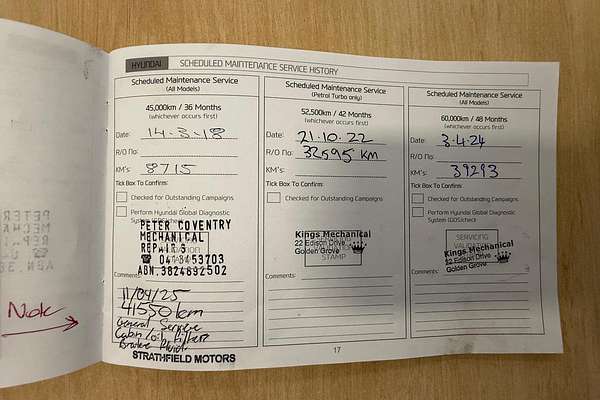 HYUNDAI SCHEDULED MAINTENANCE SERVICE HISTORY
Scheduled Maintenance Service
(All Models)
45,000km / 36 Months
(whichever occurs first)
Date: 14·3·18
R/O No:
KM's: 8715
Tick Box To Confirm:
Checked for Outstanding Campaigns
Perform Hyundai Global Diagnostic
System (GDS)check
PETER COVENTRY
MECHANICAL
REPAIRS
☎ 0413453703
ABN.3824892502
Comments:
11/04/25
41550km
General Service
Cabin/oil filters
Brake fluid
STRATHFIELD MOTORS
Scheduled Maintenance Service
(Petrol Turbo only)
52,500km / 42 Months
(whichever occurs first)
Date: 21·10·22
R/O No: 32595 KM
KM's:
Tick Box To Confirm:
Checked for Outstanding Campaigns
Kings Mechanical
22 Edison Drive
Golden Grove
STAMP
Comments:
17
Scheduled Maintenance Service
(All Models)
60,000km / 48 Months
(whichever occurs first)
Date: 3·4·24
R/O No:
KM's: 39293
Tick Box To Confirm:
Checked for Outstanding Campaigns
Perform Hyundai Global Diagnostic
System (GDS)check
SERVICING
Kings Mechanical
22 Edison Drive
Golden Grove
Comments: